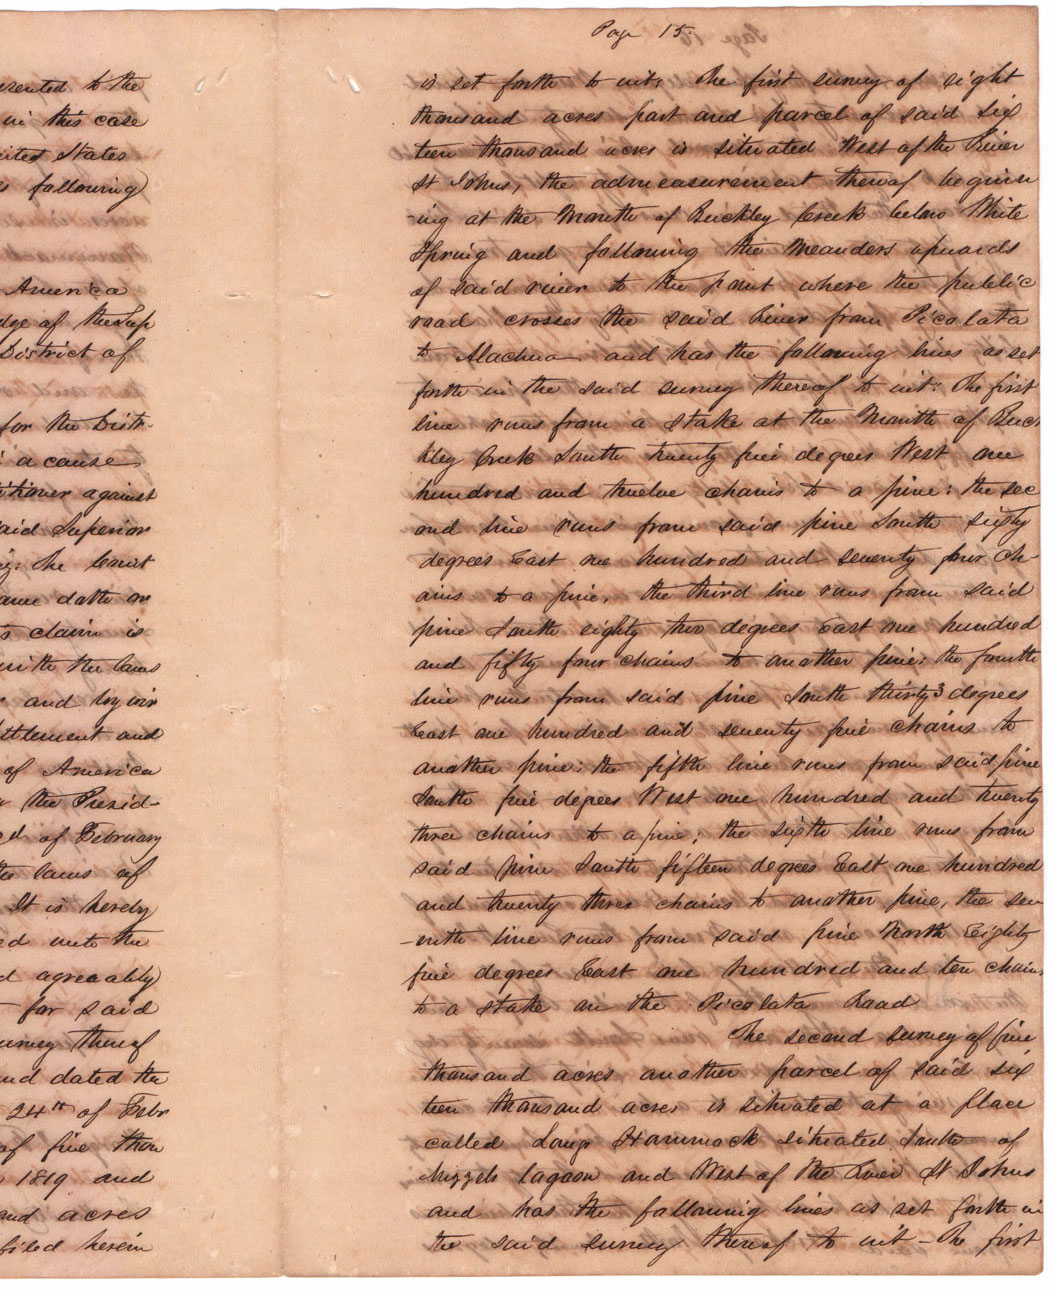 esented to the
in this case
ited States
s following
America
dge of the Sup
District of
for the Distr-
a cause
titioner against
aid Superior
the Court
ame doth or
s claim is
with the laws
and by vir
ettlement and
of America
the Presid-
ed of February
the laws of
It is hereby
ed unto the
d agreeably
for said
urvey thereof
nd dated the
24th of Febr
of five thou
1819 and
and acres
filed herein
Page 15.
is set forth to wit, The first survey of eight
thousand acres part and parcel of said six
teen thousand acres is situated West of the River
St Johns, the admeasurement thereof beginn
-ing at the Mouth of Buckley Creek below White
Spring and following the Meanders upwards
of said river to the point where the public
road crosses the said River from Picolata
to Alachua and has the following lines as set
forth in the said survey thereof to wit: The first
line runs from a stake at the Mouth of Buck
kley Creek South twenty five degrees West one
hundred and twelve chains to a pine; the sec
ond line runs from said pine South sixty
degrees East one hundred and seventy four ch-
ains to a pine, the third line runs from said
pine South eighty two degrees East one hundred
and fifty four chains to another pine; the fourth
line runs from said pine South thirty 3 degrees
East one hundred and seventy five chains to
another pine; the fifth line runs from said pine
South five degrees West one hundred and twenty
three chains to a pine; the sixth line runs from
said pine South fifteen degrees East one hundred
and twenty three chains to another pine, the sev
-enth line runs from said pine North Eighty
five degrees East one hundred and ten chains
to a stake on the Picolata Road
The second survey of five
thousand acres another parcel of said six
teen thousand acres is situated at a place
called Long Hammock situated South of
lagoon and West of the River St Johns
and has the following lines as set forth in
the said survey thereof to wit - The first